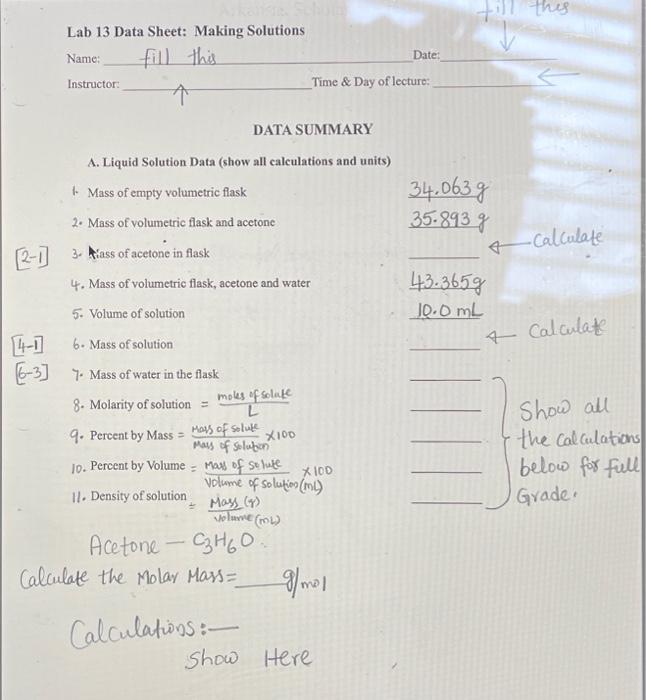 fill this
Lab 13 Data Sheet: Making Solutions
Name: fill this Date:
Instructor: Time & Day of lecture:
DATA SUMMARY
A. Liquid Solution Data (show all calculations and units)
1. Mass of empty volumetric flask 34.063 g
2. Mass of volumetric flask and acetone 35.893 g
[2-1] 3. Mass of acetone in flask ← Calculate
4. Mass of volumetric flask, acetone and water 43.365g
5. Volume of solution 10.0 mL
[4-1] 6. Mass of solution ← Calculate
[6-3] 7. Mass of water in the flask
8. Molarity of solution = moles of solute / L
9. Percent by Mass = Mass of solute / Mass of solution ×100
10. Percent by Volume = Mass of solute / Volume of solution (mL) ×100
11. Density of solution = Mass (g) / Volume (mL)
Show all
the calculations
below for full
Grade.
Acetone — C3H6O.
Calculate the Molar Mass = ____ g/mol
Calculations:—
Show Here